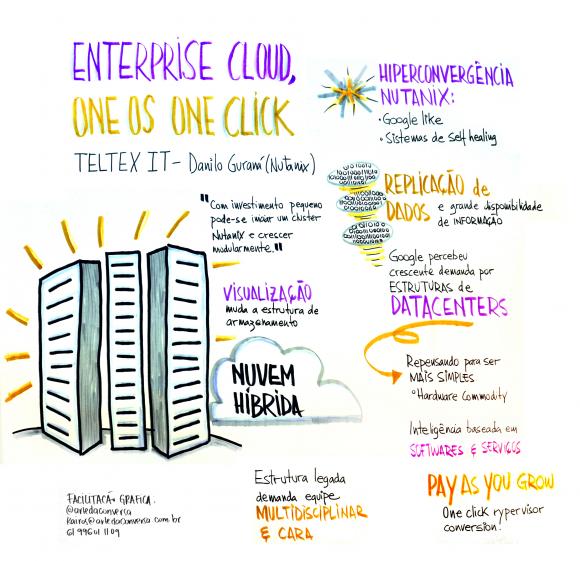 ENTERPRISE CLOUD,
ONE OS ONE CLICK
TELTEX IT - Danilo Guraná (Nutanix)
"Com investimento pequeno
pode-se iniciar um cluster
Nutanix e crescer
modularmente."
VISUALIZAÇÃO
muda a estrutura de
armazenamento
NUVEM
HÍBRIDA
HIPERCONVERGÊNCIA
NUTANIX:
• Google like
• Sistemas de Self healing
REPLICAÇÃO de
DADOS e grande disponibilidade
de INFORMAÇÃO
Google percebeu
crescente demanda por
ESTRUTURAS de
DATACENTERS
Repensando para ser
MAIS SIMPLES
° Hardware Commodity
Inteligência baseada em
SOFTWARES & SERVIÇOS
Estrutura legada
demanda equipe
MULTIDISCIPLINAR
& CARA
PAY AS YOU GROW
One click rypervisor
conversion!
FACILITAÇÃO GRÁFICA:
@artedaconversa
kairos@artedaconversa.com.br
61 99601 1109